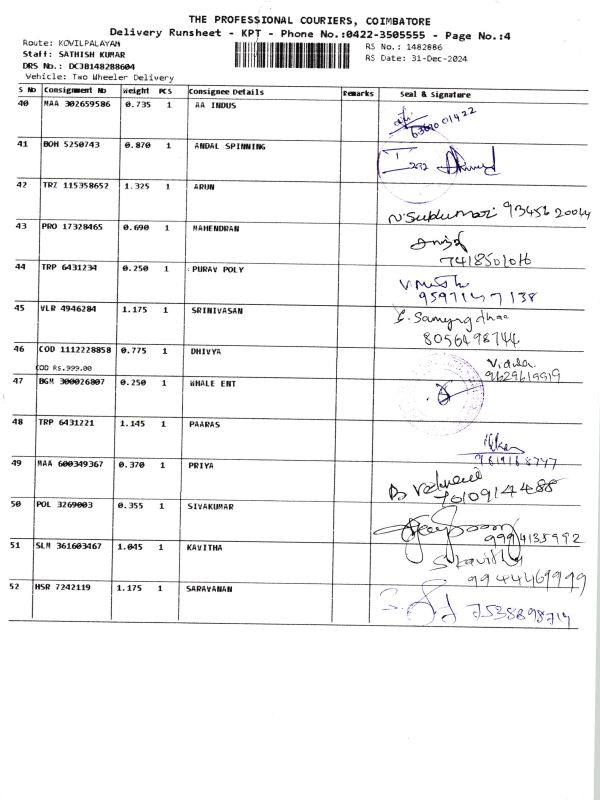 THE PROFESSIONAL COURIERS, COIMBATORE
Delivery Runsheet - KPT - Phone No.:0422-3505555 - Page No.:4
Route: KOVILPALAYAM
Staff: SATHISH KUMAR
DRS No.: DCJB148288604
Vehicle: Two Wheeler Delivery
RS No.: 1482886
RS Date: 31-Dec-2024
S No Consignment No Weight PCS Consignee Details Remarks Seal & Signature
40 MAA 302659586 0.735 1 AA INDUS
41 BOM 5250743 0.870 1 ANDAL SPINNING
42 TRZ 115358652 1.325 1 ARUN
43 PRO 17328465 0.690 1 MAHENDRAN
7418501016
44 TRP 6431234 0.250 1 PURAV POLY
9597147138
45 VLR 4946284 1.175 1 SRINIVASAN
8056498744
46 COD 1112228858 0.775 1 DHIVYA
COD RS.999.00
9629619519
47 BGM 300026807 0.250 1 WHALE ENT
48 TRP 6431221 1.145 1 PAARAS
49 MAA 600349367 0.370 1 PRIYA
7010914488
50 POL 3269003 0.355 1 SIVAKUMAR
9994135992
51 SLM 361603467 1.045 1 KAVITHA
S. Kavitha
9944469999
52 HSR 7242119 1.175 1 SARAVANAN
7538898714